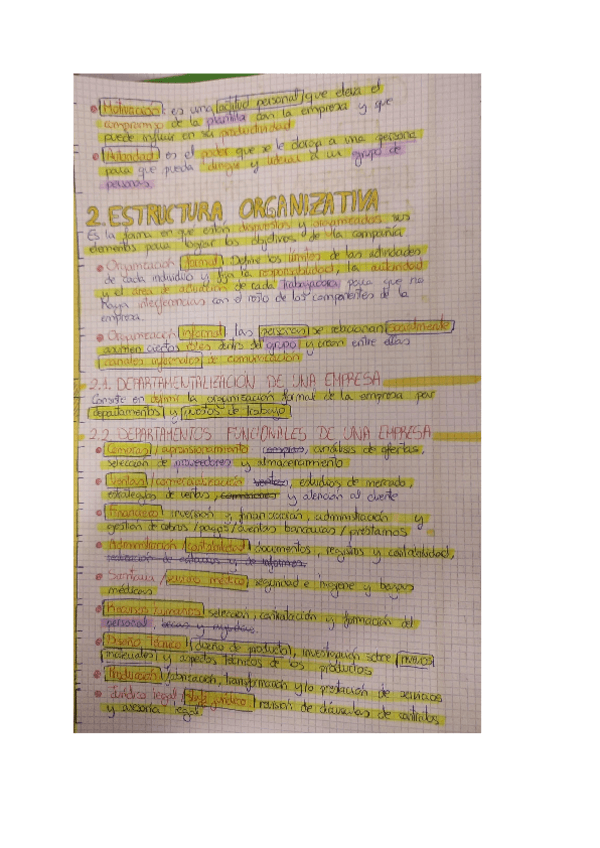 • Motivación: es una actitud personal que eleva el
compromiso de la plantilla con la empresa y que
puede influir en su productividad
• Autoridad: es el poder que se le otorga a una persona
para que pueda dirigir y liderar a un grupo de
personas.
2. ESTRUCTURA ORGANIZATIVA
Es la forma en que están dispuestos y interconectados sus
elementos para lograr los objetivos de la compañía
• Organización formal: Define los límites de las actividades
de cada individuo y fija la responsabilidad, la autoridad
y el área de actuación de cada trabajador para que no
haya interferencias con el resto de los componentes de la
empresa.
• Organización informal: las personas se relacionan socialmente
asumen ciertos roles dentro del grupo y crean entre ellas
canales informales de comunicación
2.1. DEPARTAMENTALIZACIÓN DE UNA EMPRESA
Consiste en definir la organización formal de la empresa por
departamentos y puestos de trabajo
2.2 DEPARTAMENTOS FUNCIONALES DE UNA EMPRESA
• Compras / aprovisionamiento compras, análisis de ofertas,
selección de proveedores y almacenamiento
• Ventas / comercialización ventas, estudios de mercado,
estrategias de ventas, comisiones y atención al cliente
• Financiero inversión, financiación, administración y
gestión de cobros / pagos / cuentas bancarias / préstamos
• Administración / contabilidad documentos, registros y contabilidad,
realización de estudios y de informes.
• Sanitaria / servicio médico seguridad e higiene y bajas
médicas
• Recursos humanos selección, contratación y formación del
personal
• Diseño técnico diseño de producto, investigación sobre nuevos
materiales y aspectos técnicos de los productos
• Producción fabricación, transformación y/o prestación de servicios
• Jurídico legal / jurídico revisión de cláusulas de contratos
y asesoría legal